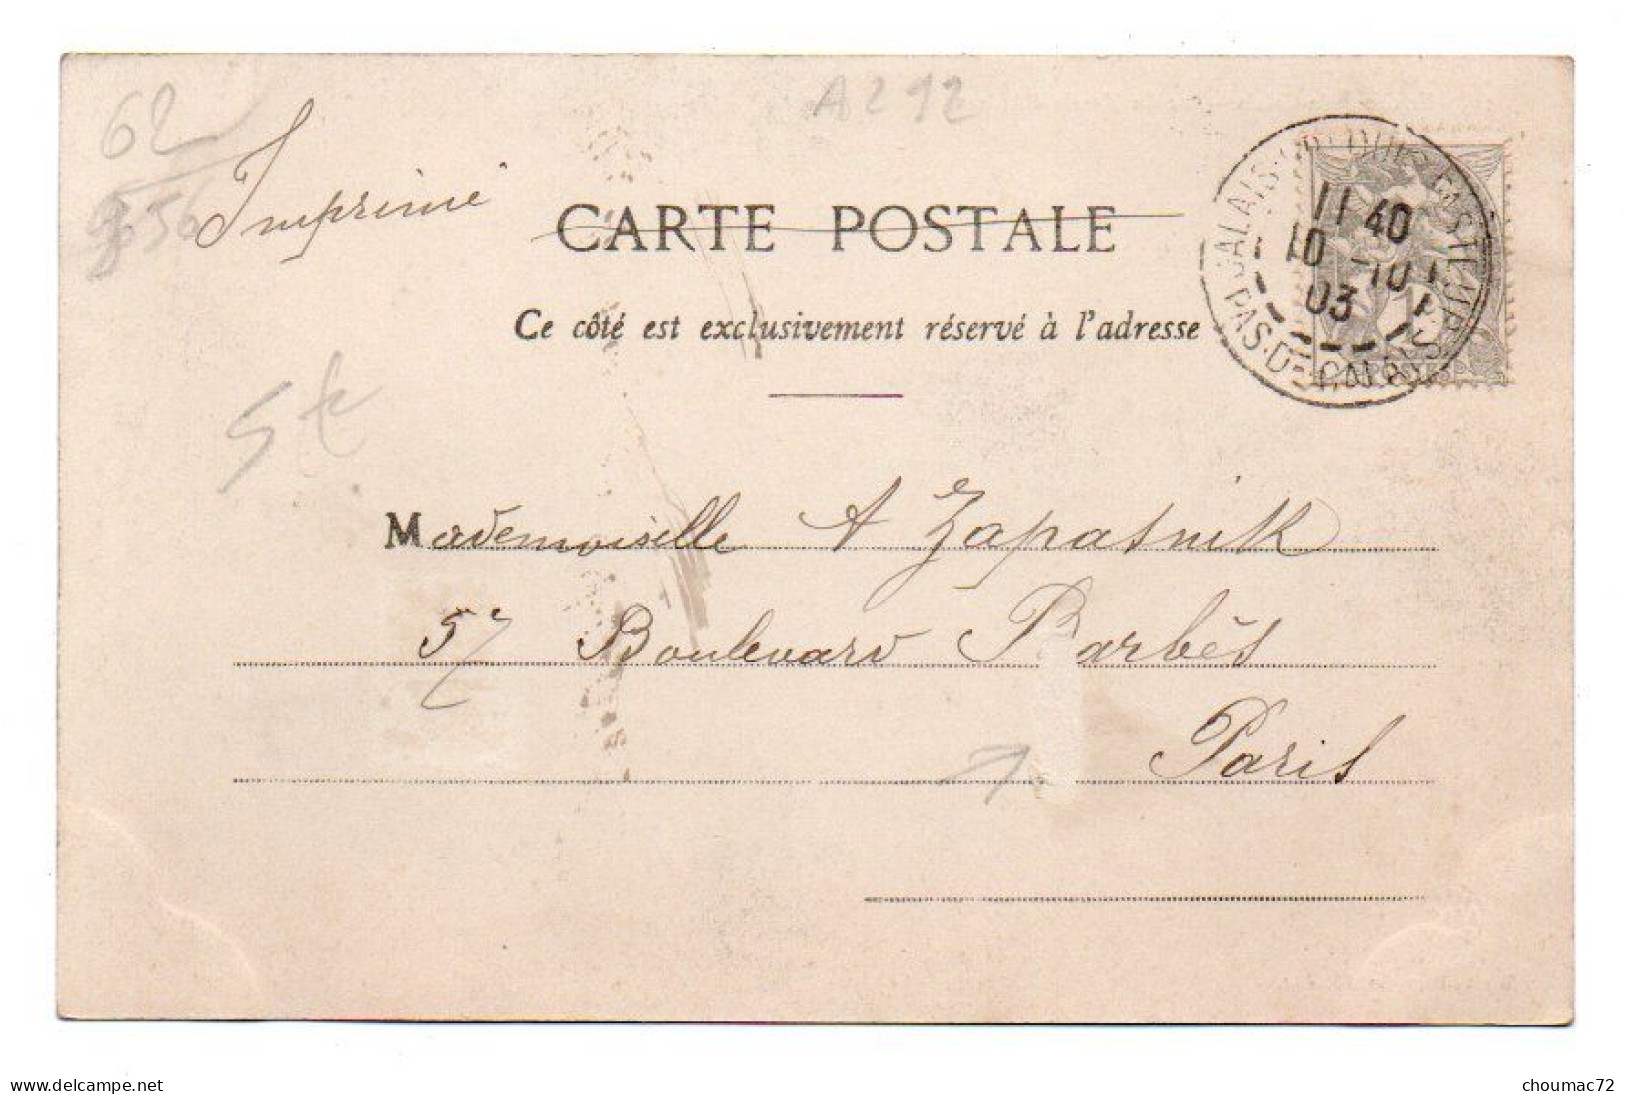 62
A292
Imprimé
CARTE POSTALE
Ce côté est exclusivement réservé à l'adresse
CALAIS
11 40
10 -10
03
PAS-DE-CALAIS
POSTES
5t
Mademoiselle A Zapatnik
57 Boulevard Barbès
Paris
www.delcampe.net
choumac72